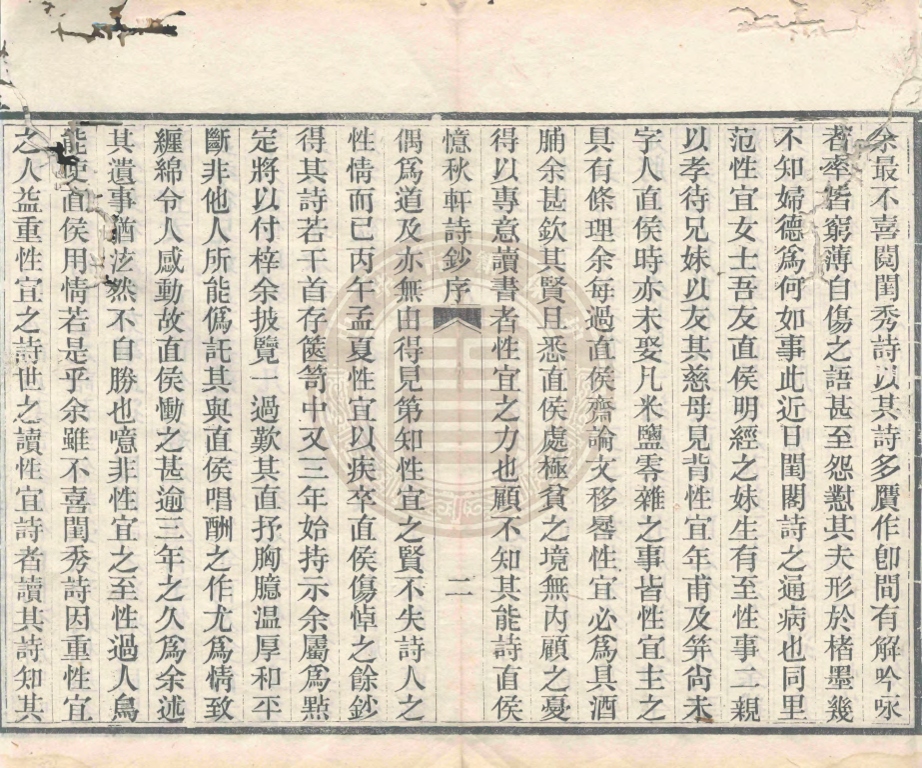 余最不喜閱閨秀詩以其詩多贋作卽間有解吟咏
者率皆窮薄自傷之語甚至怨懟其夫形於楮墨幾
不知婦德爲何如事此近日閨閣詩之通病也同里
范性宜女士吾友直侯明經之妹生有至性事二親
以孝待兄妹以友其慈母見背性宜年甫及笄尙未
字人直侯時亦未娶凡米鹽零雜之事皆性宜主之
具有條理余每過直侯齋論文移晷性宜必爲具酒
脯余甚欽其賢且悉直侯處極貧之境無內顧之憂
得以專意讀書者性宜之力也顧不知其能詩直侯
憶秋軒詩鈔序 二
偶爲道及亦無由得見第知性宜之賢不失詩人之
性情而已丙午孟夏性宜以疾卒直侯傷悼之餘鈔
得其詩若干首存篋笥中又三年始持示余屬爲㸃
定將以付梓余披覽一過歎其直抒胸臆温厚和平
斷非他人所能僞託其與直侯唱酬之作尤爲情致
纏綿令人感動故直侯慟之甚逾三年之久爲余述
其遺事猶泫然不自勝也噫非性宜之至性過人烏
能使直侯用情若是乎余雖不喜閨秀詩因重性宜
之人益重性宜之詩世之讀性宜詩者讀其詩知其